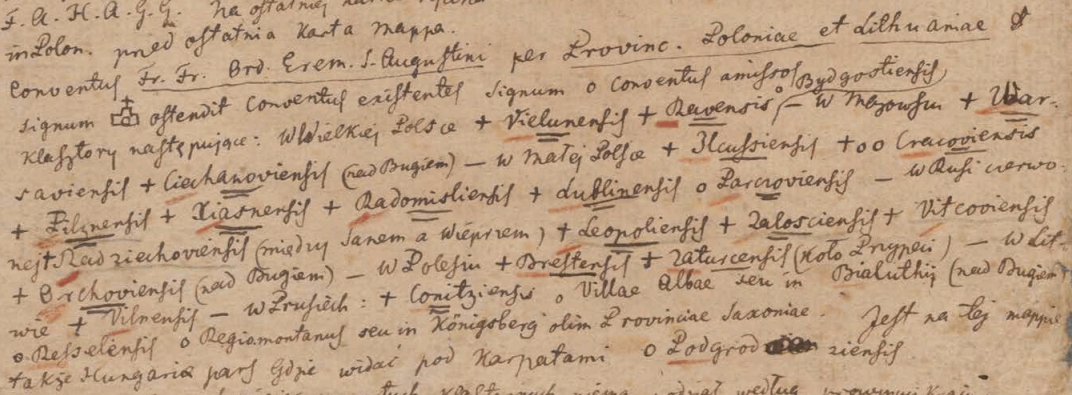 F. A. H. A. G. G. Na ostatniej
in Polon. przed ostatnia Karta mappa.
Conventus Fr. Fr. Ord. Erem. S. Augustini per Provinc. Poloniae et Lithuaniae
signum ostendit Conventus existentes signum o conventus amissos
Klasztory następujące: W Wielkiej Polsce + Vielunensis + Ravensis o Bydgostiensis, – w Mazowszu + War-
saviensis + Ciechanoviensis (nad Bugiem) – w Małej Polsce + Ilcussiensis + o o Cracoviensis
+ Pilznensis + Xiasnensis + Radomisliensis + Lublinensis o Parczoviensis – w Rusi czerwo-
nej + Radziechoviensis (między Sanem a Wieprzem) + Leopoliensis + Zalosciensis + Vitcoviensis
+ Orchoviensis (nad Bugiem) – w Polesiu + Brestensis + Zaturcensis (Koło Prypeci) – w Lit-
wie + Vilnensis – w Prusiech: + Conitziensis o Villae Albae seu in Bialuthij (nad Bugiem)
o Resselensis o Regiomontanus seu in Königsberg olim Provinciae Saxoniae. Jest na tej mappie
także Hungariae pars Gdzie widać pod Karpatami o Podgrodziensis